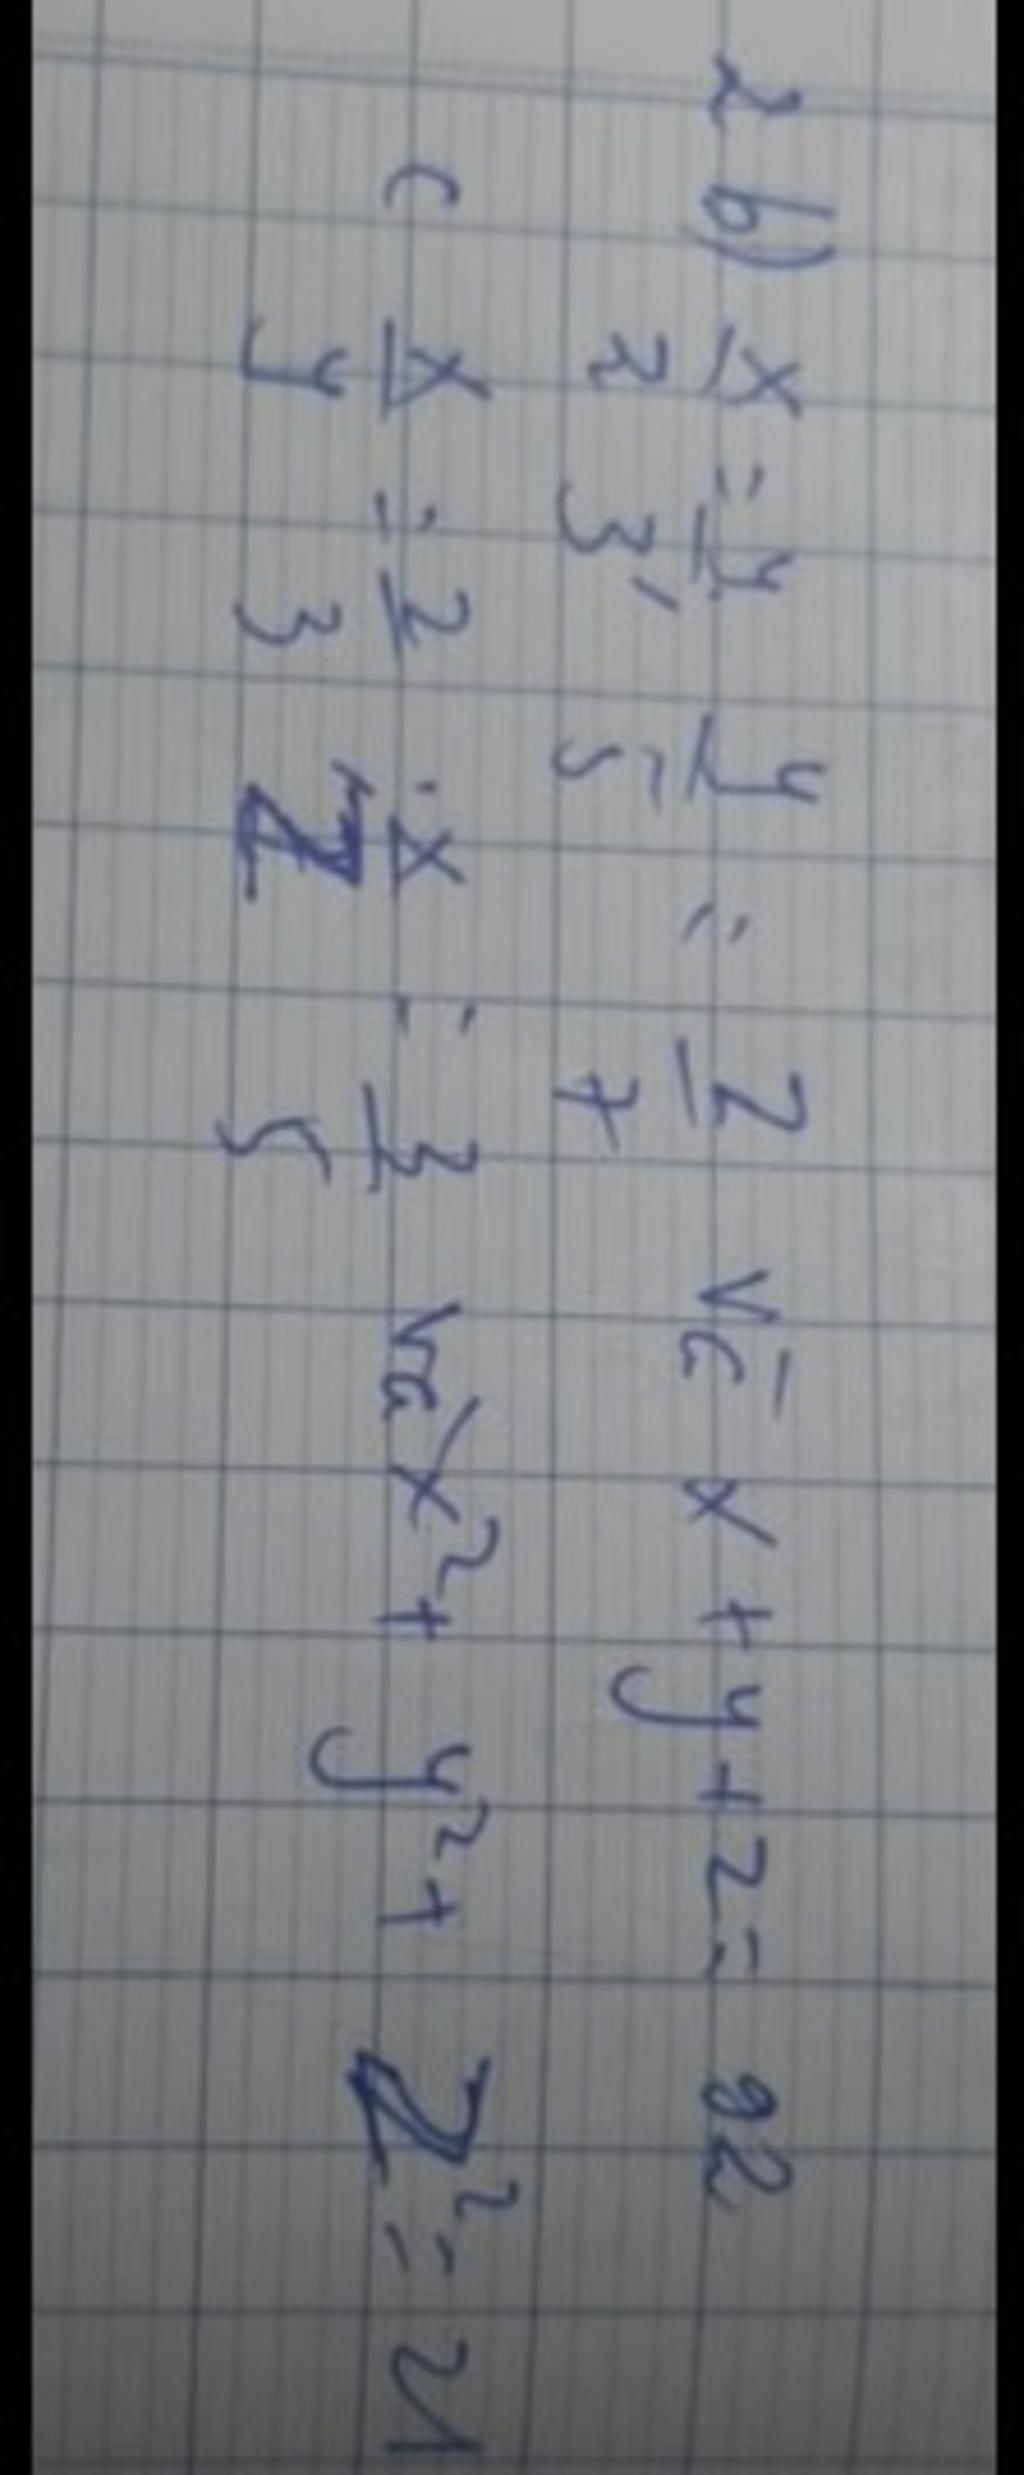 2 b) x/2 = y/3, y/5 = z/7 và x + y + z = 92
c x/y = 2/3 ; x/z = 3/5 và x² + y² + z² = 21